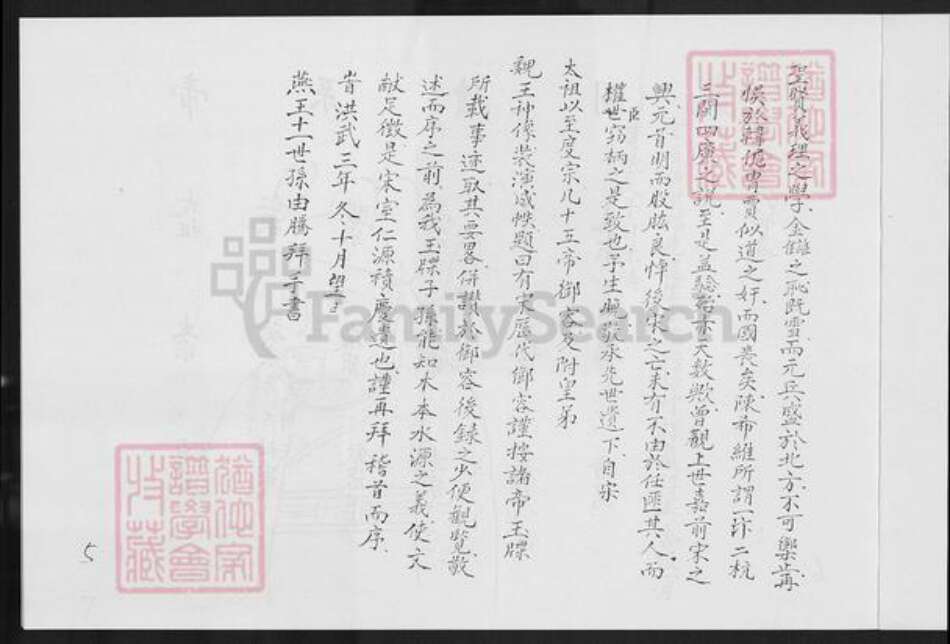 聖賢義理之學金讎之恥既雪而元兵盛於北方不可禦豈再
悞於韓侂胄賈似道之奸而國喪矣陳希維所謂一汴二杭
三閩四廣之說至是益驗寔亦天数歟曾觀上世嘉前宋之
興元首明而股肱良悼後宋之亡未有不由於任匪其人而
權臣世窃柄之是致也予生晚敬承先世遺下自宋
太祖以至度宗凡十五帝御容及附皇弟
魏王神像装演成帙題曰有宋歷代御容謹按諸帝玉牒
所載事迹取其要畧併讚於御容後録之少便觀覽敬
述而序之前為我玉牒子孫能知木本水源之義使文
献足徵是宋室仁源積慶遺也謹再拜稽首而序
旹洪武三年冬十月望日
燕王十一世孫由騰拜手書
5
猶他家譜學會收藏
猶他家譜學會收藏
FamilySearch